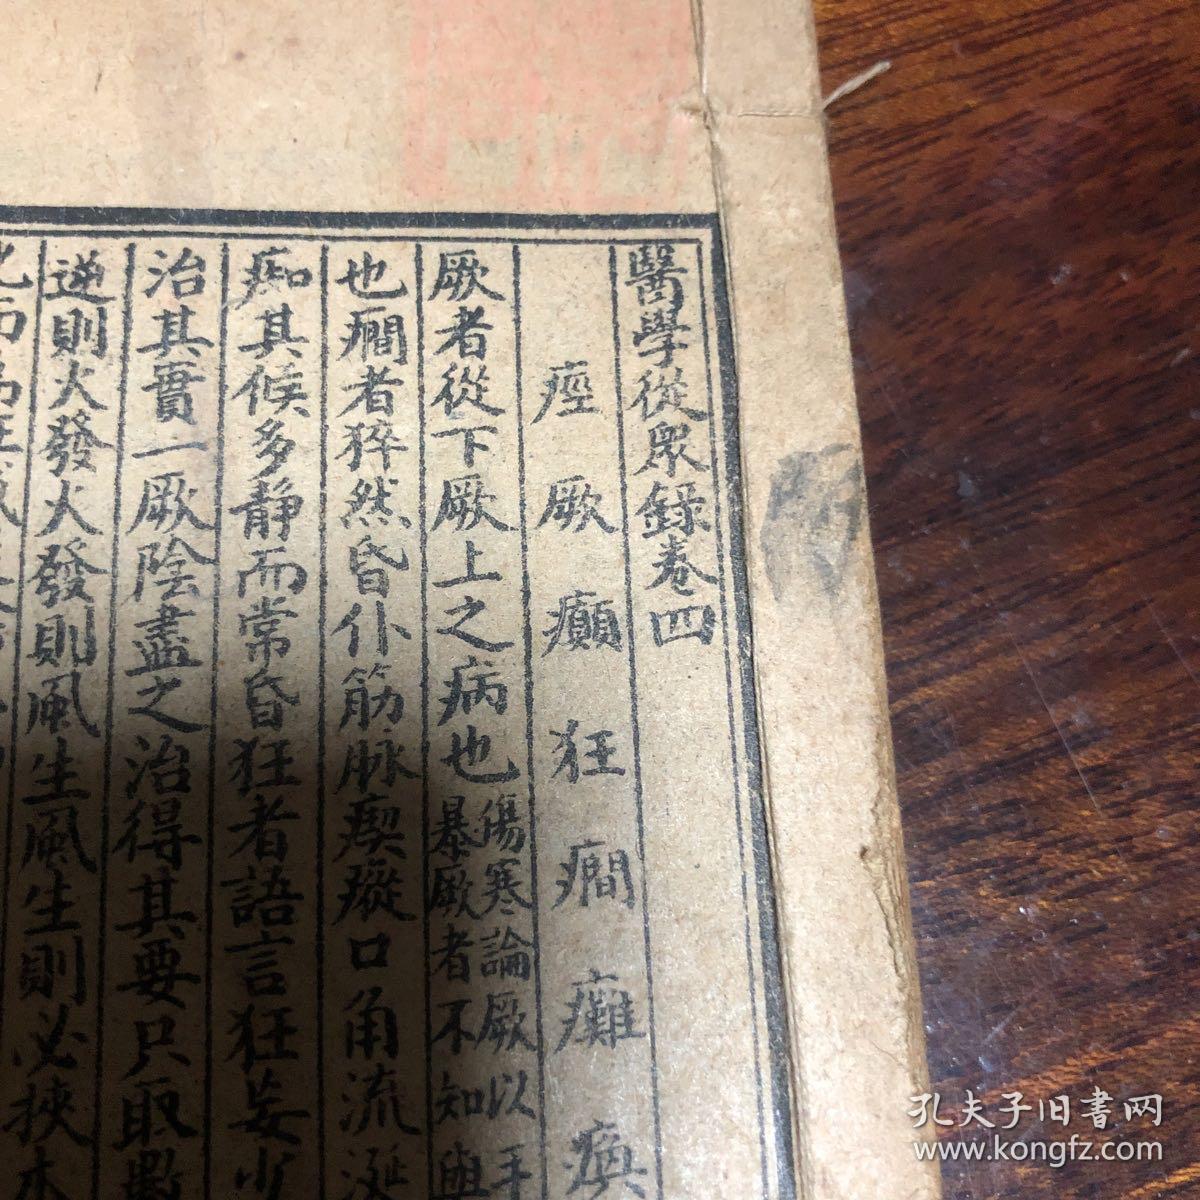 醫學從眾錄卷四
痙厥癲狂癇癱瘓
厥者從下厥上之病也傷寒論厥以手
暴厥者不知與
也癇者猝然昏仆筋脉瘈瘲口角流涎
痴其候多静而常昏狂者語言狂妄少
治其實一厥陰盡之治得其要只取數
逆則火發火發則風生風生則必挾木
孔夫子旧書网
www.kongfz.com